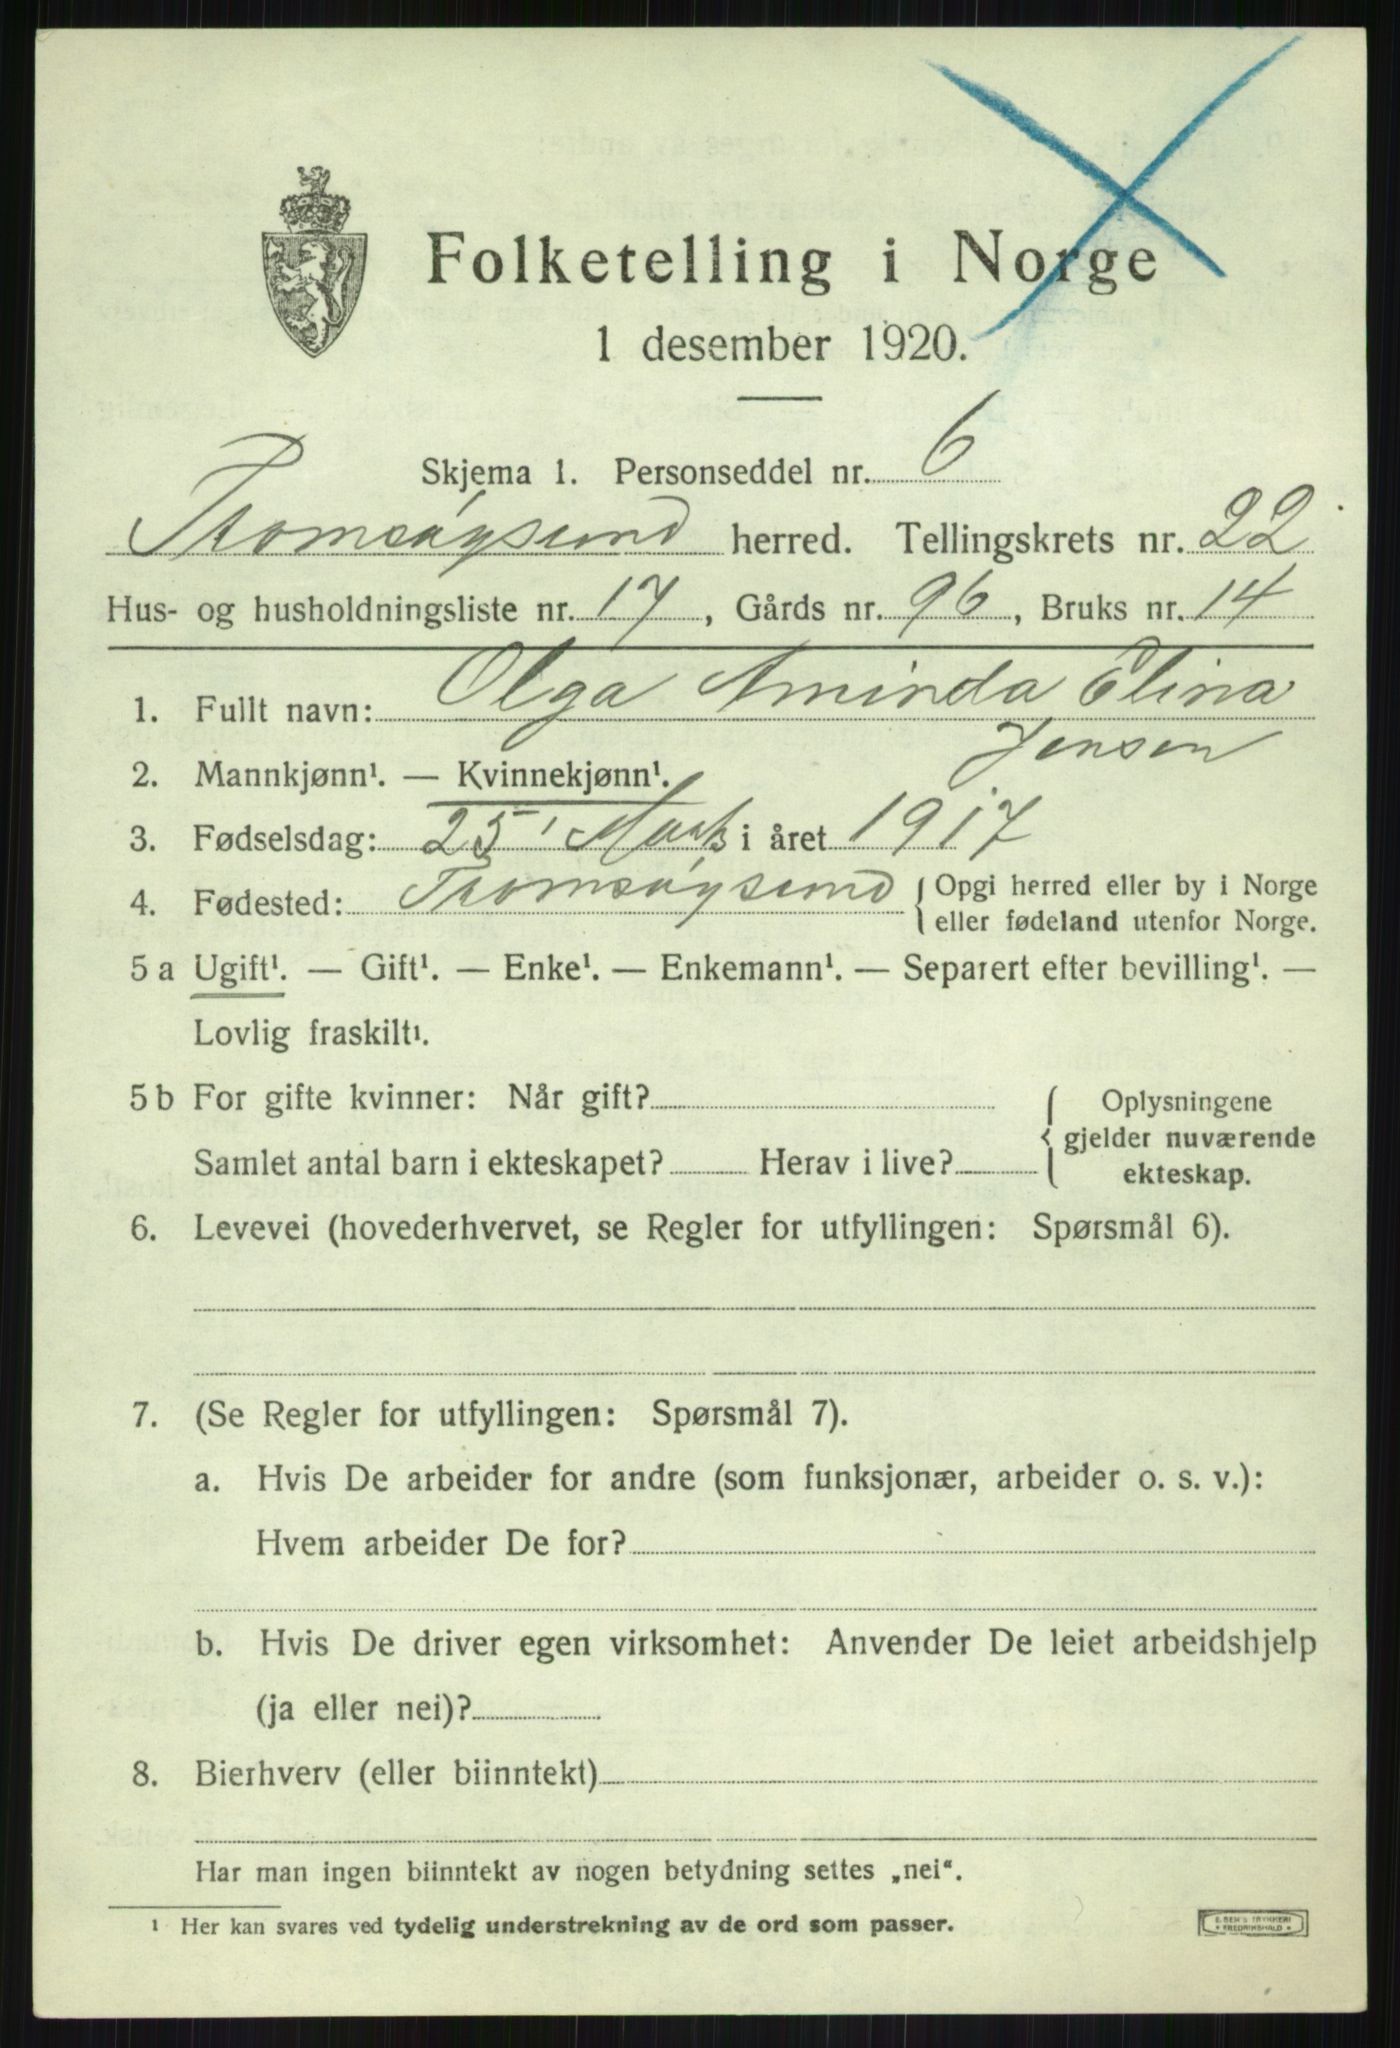 Folketelling i Norge
1 desember 1920.
Skjema 1. Personseddel nr. 6
Tromsøysund herred. Tellingskrets nr. 22
Hus- og husholdningsliste nr. 17, Gårds nr. 96, Bruks nr. 14
1. Fullt navn: Olga Aminda Elina
Jensen
2. Mannkjønn¹. — Kvinnekjønn¹.
3. Fødselsdag: 25' Marts i året 1917
4. Fødested: Tromsøysund { Opgi herred eller by i Norge
eller fødeland utenfor Norge.
5 a Ugift¹. — Gift¹. — Enke¹. — Enkemann¹. — Separert efter bevilling¹. —
Lovlig fraskilt¹.
5 b For gifte kvinner: Når gift?
Samlet antal barn i ekteskapet? Herav i live?
{ Oplysningene
gjelder nuværende
ekteskap.
6. Levevei (hovederhvervet, se Regler for utfyllingen: Spørsmål 6).
7. (Se Regler for utfyllingen: Spørsmål 7).
a. Hvis De arbeider for andre (som funksjonær, arbeider o. s. v.):
Hvem arbeider De for?
b. Hvis De driver egen virksomhet: Anvender De leiet arbeidshjelp
(ja eller nei)?
8. Bierhverv (eller biinntekt)
Har man ingen biinntekt av nogen betydning settes „nei“.
¹ Her kan svares ved tydelig understrekning av de ord som passer.
TRYKKERI
FREDRIKSHALD